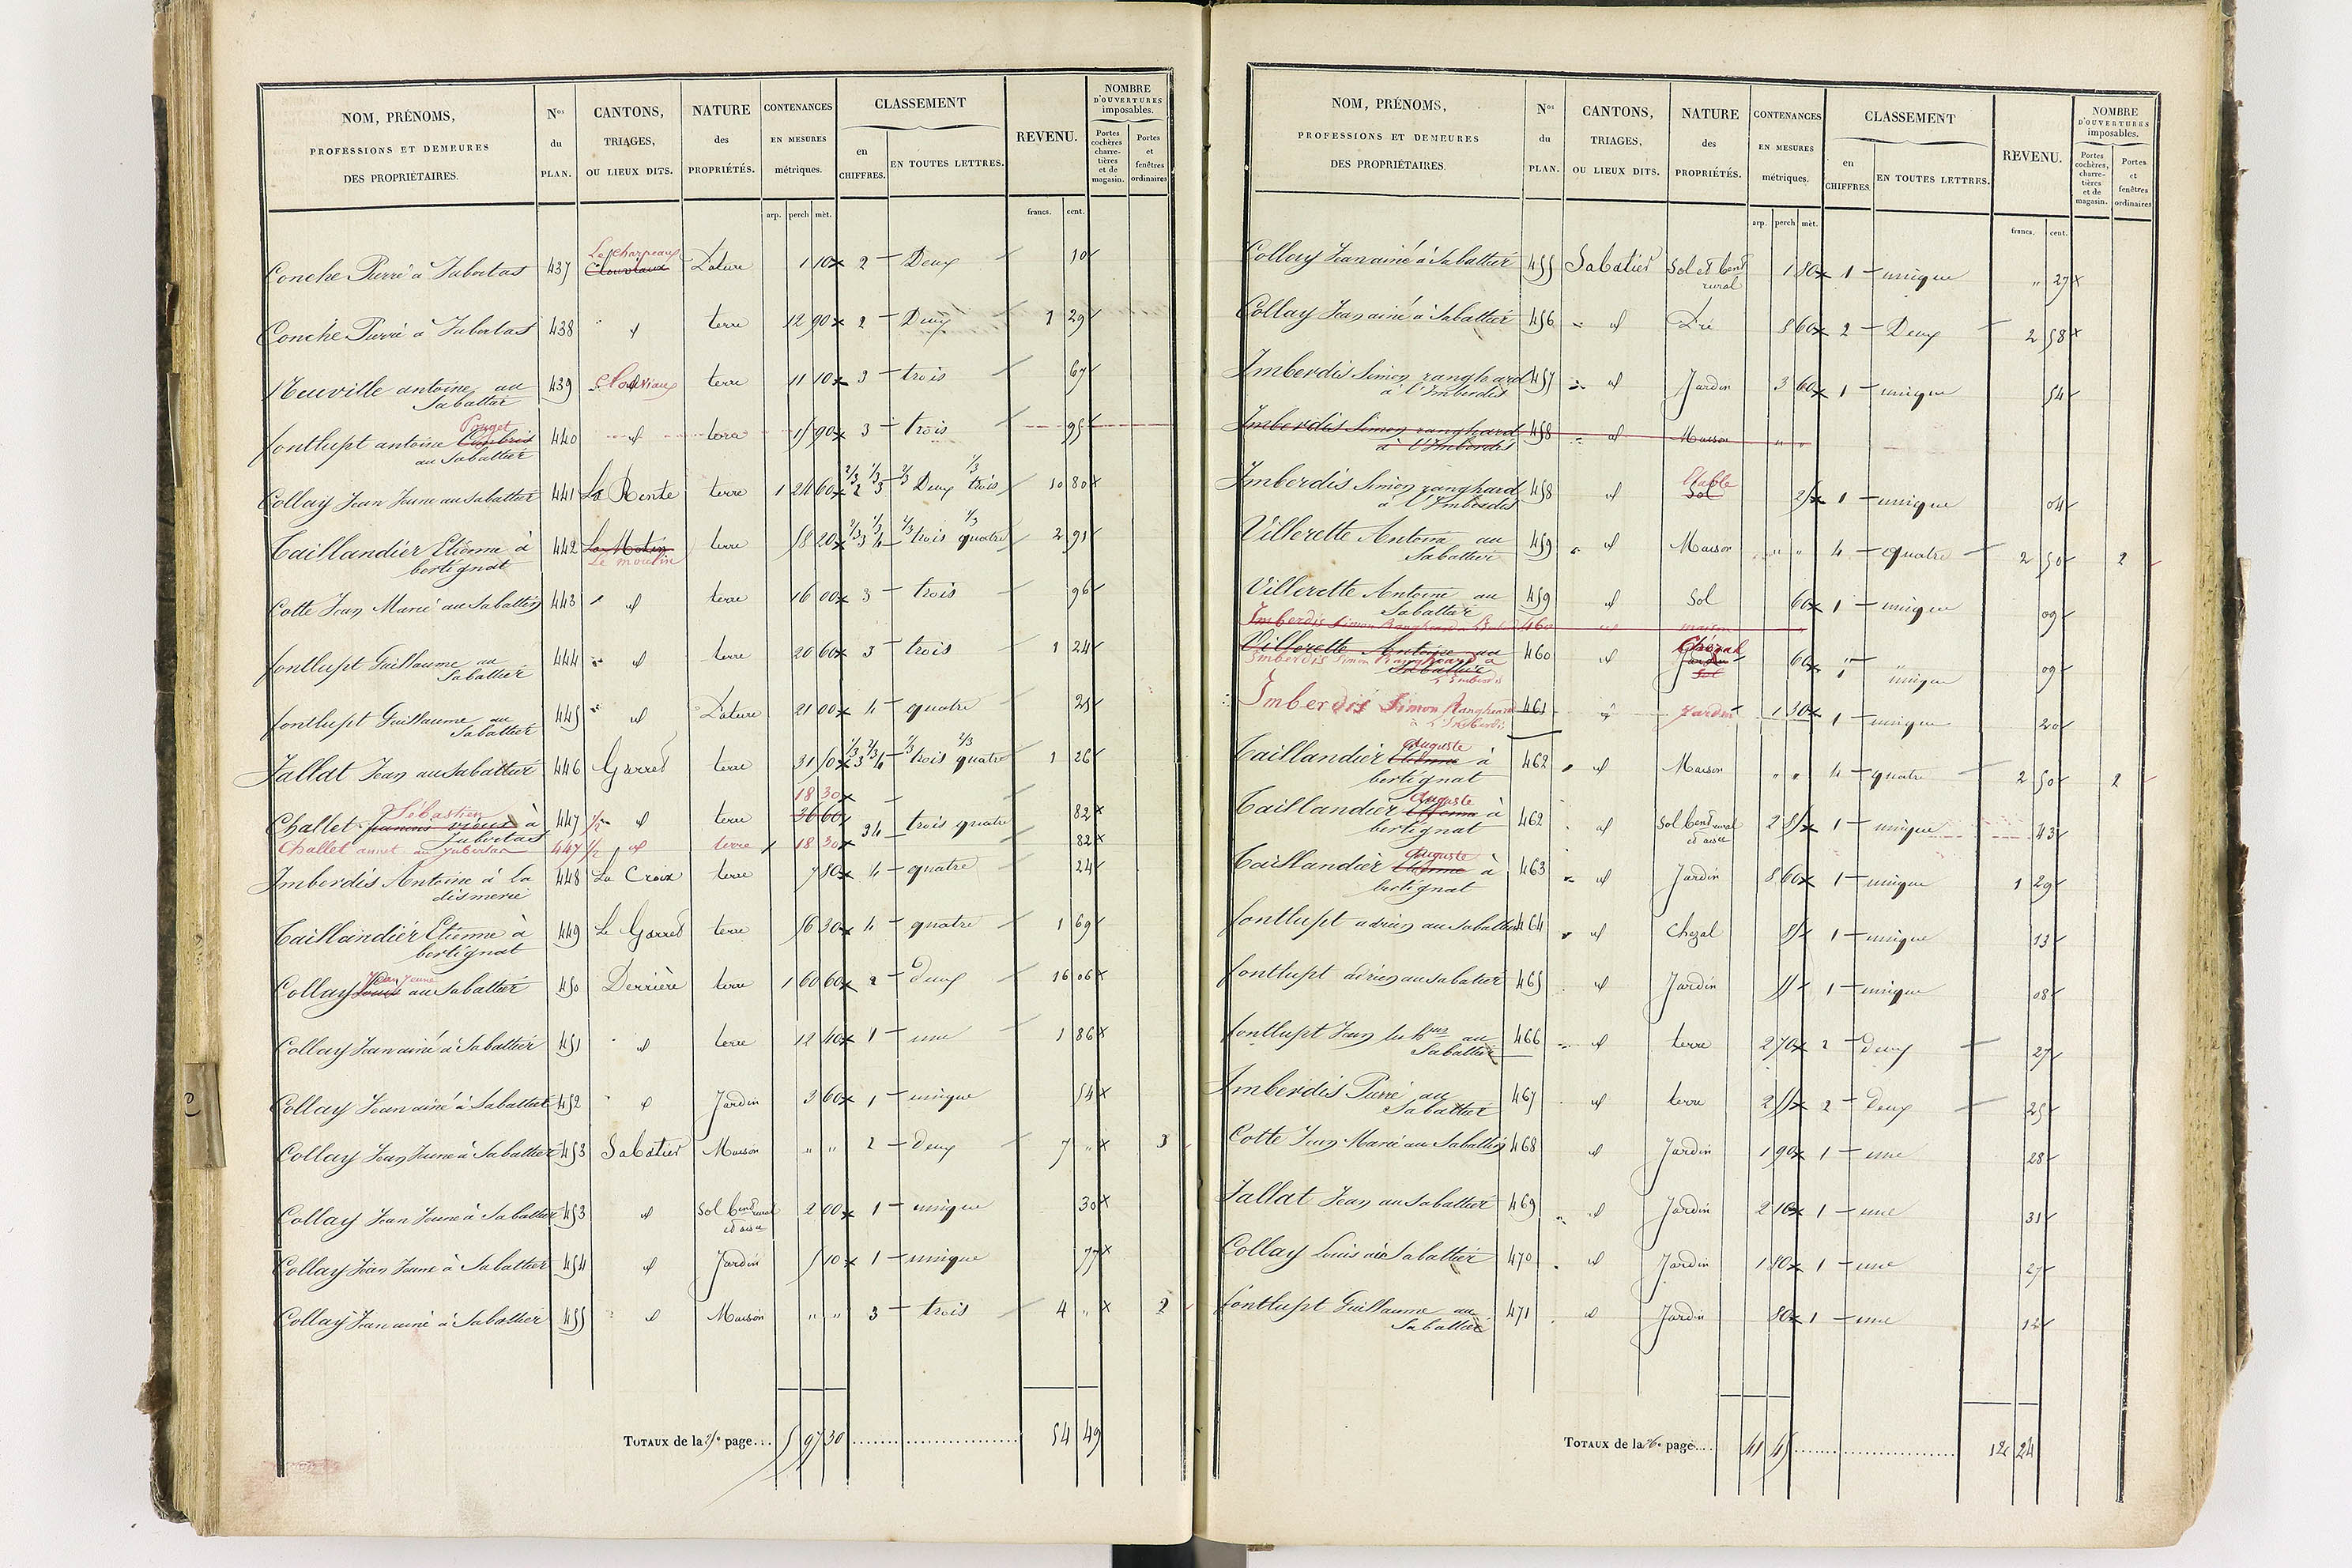 NOM, PRÉNOMS, PROFESSIONS ET DEMEURES DES PROPRIÉTAIRES. Nos du PLAN. CANTONS, TRIAGES, OU LIEUX DITS. NATURE des PROPRIÉTÉS. CONTENANCES EN MESURES métriques. CLASSEMENT en CHIFFRES. EN TOUTES LETTRES. REVENU. NOMBRE D'OUVERTURES imposables. Portes cochères, charretières et de magasin. Portes et fenêtres ordinaires
arp. perch mèt. francs. cent.
Le charpeaux
Conche Pierre à Jubertas 437 Pature 1 10 2 Deux 10
Conche Pierre à Jubertas 438 id terre 12 90 2 Deux 1 29
Neuville antoine au Sabattier 439 terre 11 10 3 trois 67
Pouget
fontlupt antoine au Sabattier 440 id terre 15 90 3 trois 95
Collay Jean Jeune au Sabattier 441 La Rente terre 1 24 60 2/3 2 1/3 3 2/3 Deux 1/3 trois 10 80
Taillandier Etienne à bertignat 442 La Motin Le moulin terre 58 20 2/3 3 1/3 4 2/3 trois 1/3 quatre 2 91
Cotte Jean Marie au Sabattier 443 id terre 16 00 3 trois 96
fontlupt Guillaume au Sabattier 444 id terre 20 60 3 trois 1 24
fontlupt Guillaume au Sabattier 445 id Pature 21 00 4 quatre 25
Jallat Jean au Sabattier 446 Garret terre 31 50 1/3 3 2/3 4 1/3 trois 2/3 quatre 1 26
18 30
Challet Sébastien à Jubertas 447 1/2 id terre 36 60 3 4 trois quatre 82
Challet annet au Jubertas 447 1/2 id terre 18 30 82
Imberdis Antoine à la dismerie 448 La Croix terre 7 80 4 quatre 24
Taillandier Etienne à bertignat 449 Le Garret terre 56 30 4 quatre 1 69
Jean Jeune
Collay Louis au Sabattier 450 Derrière terre 1 60 60 2 deux 16 06
Collay Jean ainé à Sabattier 451 id terre 12 40 1 une 1 86
Collay Jean ainé à Sabattier 452 id Jardin 3 60 1 unique 54
Collay Jean Jeune à Sabattier 453 Sabatier Maison " " 2 deux 7 " 3
Collay Jean Jeune à Sabattier 453 id Sol bend rural et aisce 2 00 1 unique 30
Collay Jean Jeune à Sabattier 454 id Jardin 5 10 1 unique 77
Collay Jean ainé à Sabattier 455 id Maison " " 3 trois 4 " 2
TOTAUX de la 25e page... 5 97 30 54 49
NOM, PRÉNOMS, PROFESSIONS ET DEMEURES DES PROPRIÉTAIRES. Nos du PLAN. CANTONS, TRIAGES, OU LIEUX DITS. NATURE des PROPRIÉTÉS. CONTENANCES EN MESURES métriques. CLASSEMENT en CHIFFRES. EN TOUTES LETTRES. REVENU. NOMBRE D'OUVERTURES imposables. Portes cochères, charretières et de magasin. Portes et fenêtres ordinaires
arp. perch mèt. francs. cent.
Collay Jean ainé à Sabattier 455 Sabatier Sol et bend rural 1 80 1 unique " 27
Collay Jean ainé à Sabattier 456 id Pré 8 60 2 Deux 2 58
Imberdis Simon ranghard à l'Imberdis 457 id Jardin 3 60 1 unique 54
Imberdis Simon ranghard à l'Imberdis 458 id Maison " "
Etable
Imberdis Simon ranghard à l'Imberdis 458 id Sol 25 1 unique 04
Villerette Antoine au Sabattier 459 id Maison " " 4 quatre 2 50 2
Villerette Antoine au Sabattier 459 id Sol 60 1 unique 09
Imberdis Simon Ranghard 460 id maison
Chézal
Villerette Antoine au Sabattier 460 id Jardin Sol 60 " unique 09
Imberdis Simon Ranghard à L'Imberdis
Imberdis Simon Ranghard à L'Imberdis 461 id Jardin 1 30 1 unique 20
auguste
Taillandier Etienne à bertignat 462 id Maison " " 4 quatre 2 50 2
auguste
Taillandier Etienne à bertignat 462 id Sol bend rural et aisce 2 85 1 unique 43
auguste
Taillandier Etienne à bertignat 463 id Jardin 8 60 1 unique 1 29
fontlupt adrien au Sabattier 464 id Chezal 85 1 unique 13
fontlupt adrien au Sabatier 465 id Jardin 55 1 unique 08
fontlupt Jean au Sabattier 466 id terre 2 70 2 deux 27
Imberdis Pierre au Sabattier 467 id terre 2 55 2 deux 25
Cotte Jean Marie au Sabattier 468 id Jardin 1 90 1 une 28
Jallat Jean au Sabattier 469 id Jardin 2 10 1 une 31
Collay Louis au Sabattier 470 id Jardin 1 80 1 une 27
fontlupt Guillaume au Sabattier 471 id Jardin 80 1 une 12
TOTAUX de la 26e page... 41 45 12 24